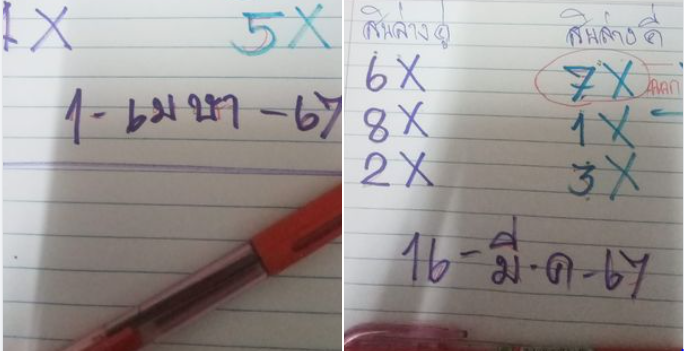 1X 5X
1-เมษา-67
สิบล่างคู่ สิบล่างคี่
6X 7X
8X 1X
2X 3X
16-มี.ค-67